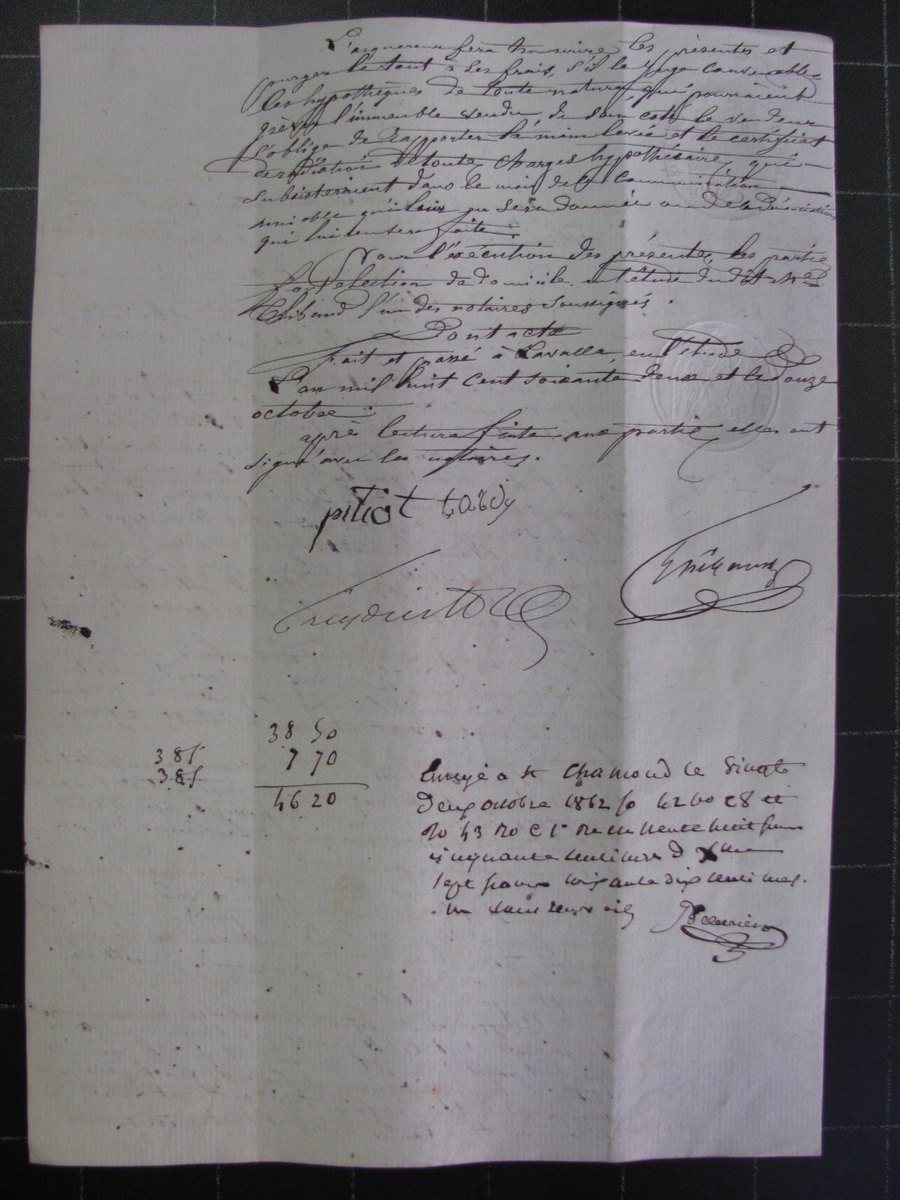 L'acquereur fera transcrire les présentes et
purger le tout à ses frais, s'il le juge convenable,
les hypothèques de toute nature qui pourraient
grèver l'immeuble vendu, de son coté le vendeur
s'oblige de rapporter la main levée et le certificat
de radiation de toutes charges hypothécaires qui
subsisteraient dans le mois de la communication
amiable qui lui en sera donnée ou de la dénonciation
qui lui en sera faite.
Pour l'exécution des présentes, les parties
font election de domicile en l'étude du dit Me
Thibaud l'un des notaires soussignés.
Dont acte
Fait et passé à Lavalla, en l'étude
L'an mil huit cent soixante deux et le douze
octobre
après lecture faite aux parties elles ont
signé avec les notaires.
pitiot tardy
Thibaud
38 50
385
7 70
385
46 20
Enregé a St Chamond le vingt
deux octobre 1862 fo 42 Vo C 8 et
fo 43 Ro C 1 Recu trente huit francs
cinquante centimes Dxme
sept francs soixante dix centimes.
sans renvoi